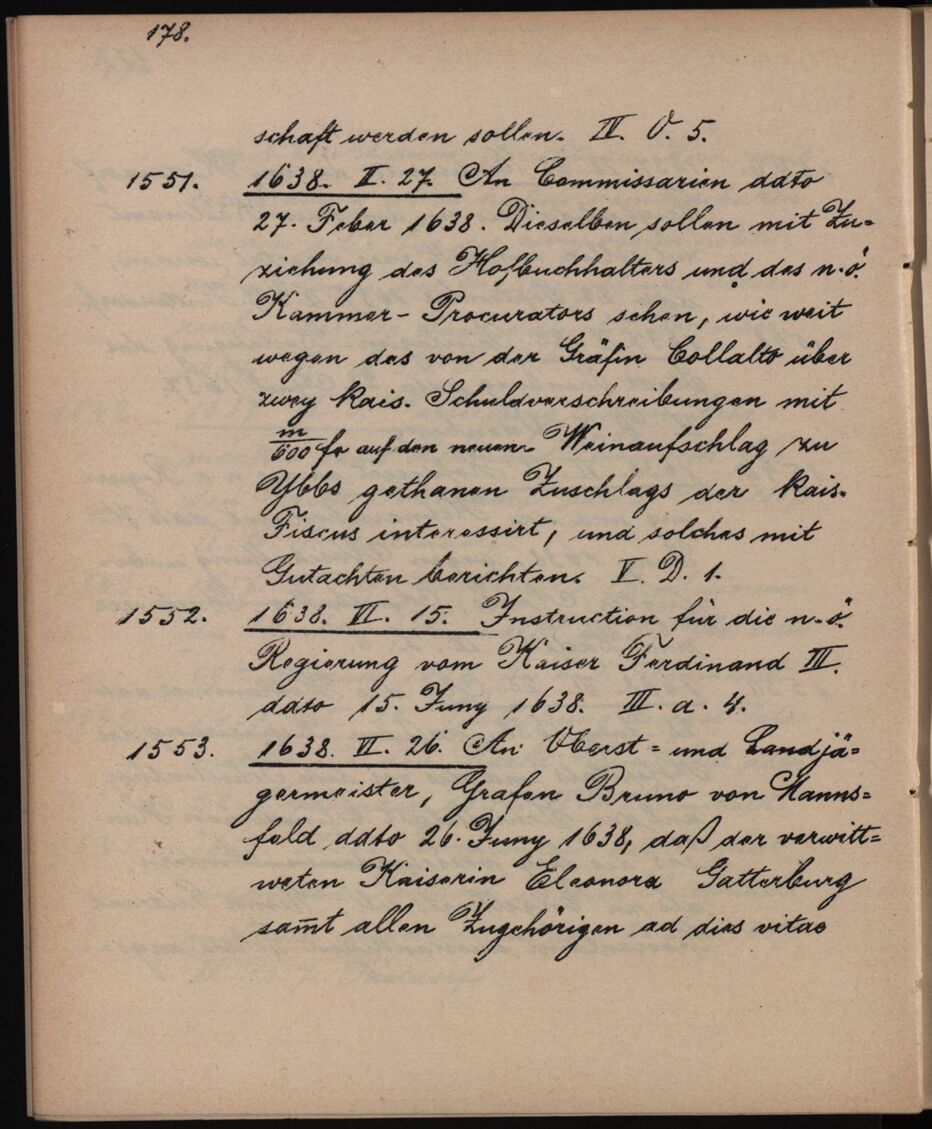 178.
schaft werden sollen. III. O. 5.
1551. 1638. II. 27. An Commissarien ddto
27. Feber 1638. Dieselben sollen mit Zu=
ziehung des Hofbuchhalters und des n.ö.
Kammer-Procurators sehen, wie weit
wegen des von der Gräfin Collalto über
zwey kais. Schuldverschreibungen mit
m/600 fr auf den neuen Weinaufschlag zu
Ybbs gethanen Zuschlags der kais.
Fiscus interessirt, und solches mit
Gutachten berichten. V. D. 1.
1552. 1638. VI. 15. Instruction für die n.ö.
Regierung vom Kaiser Ferdinand III.
ddto 15. Juny 1638. III. a. 4.
1553. 1638. VI. 26. An Oberst= und Landjä=
germeister, Grafen Bruno von Manns=
feld ddto 26. Juny 1638, daß der verwitt=
weten Kaiserin Eleonora Gatterburg
sam̄t allen Zugehörigen ad dies vitae